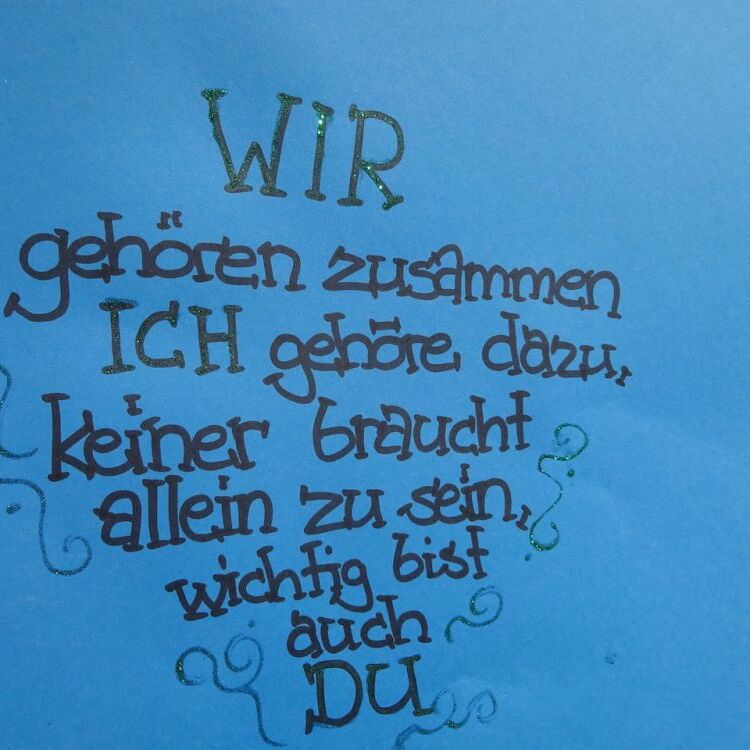 WIR
gehören zusammen
ICH gehöre dazu,
keiner braucht
allein zu sein,
wichtig bist
auch
DU